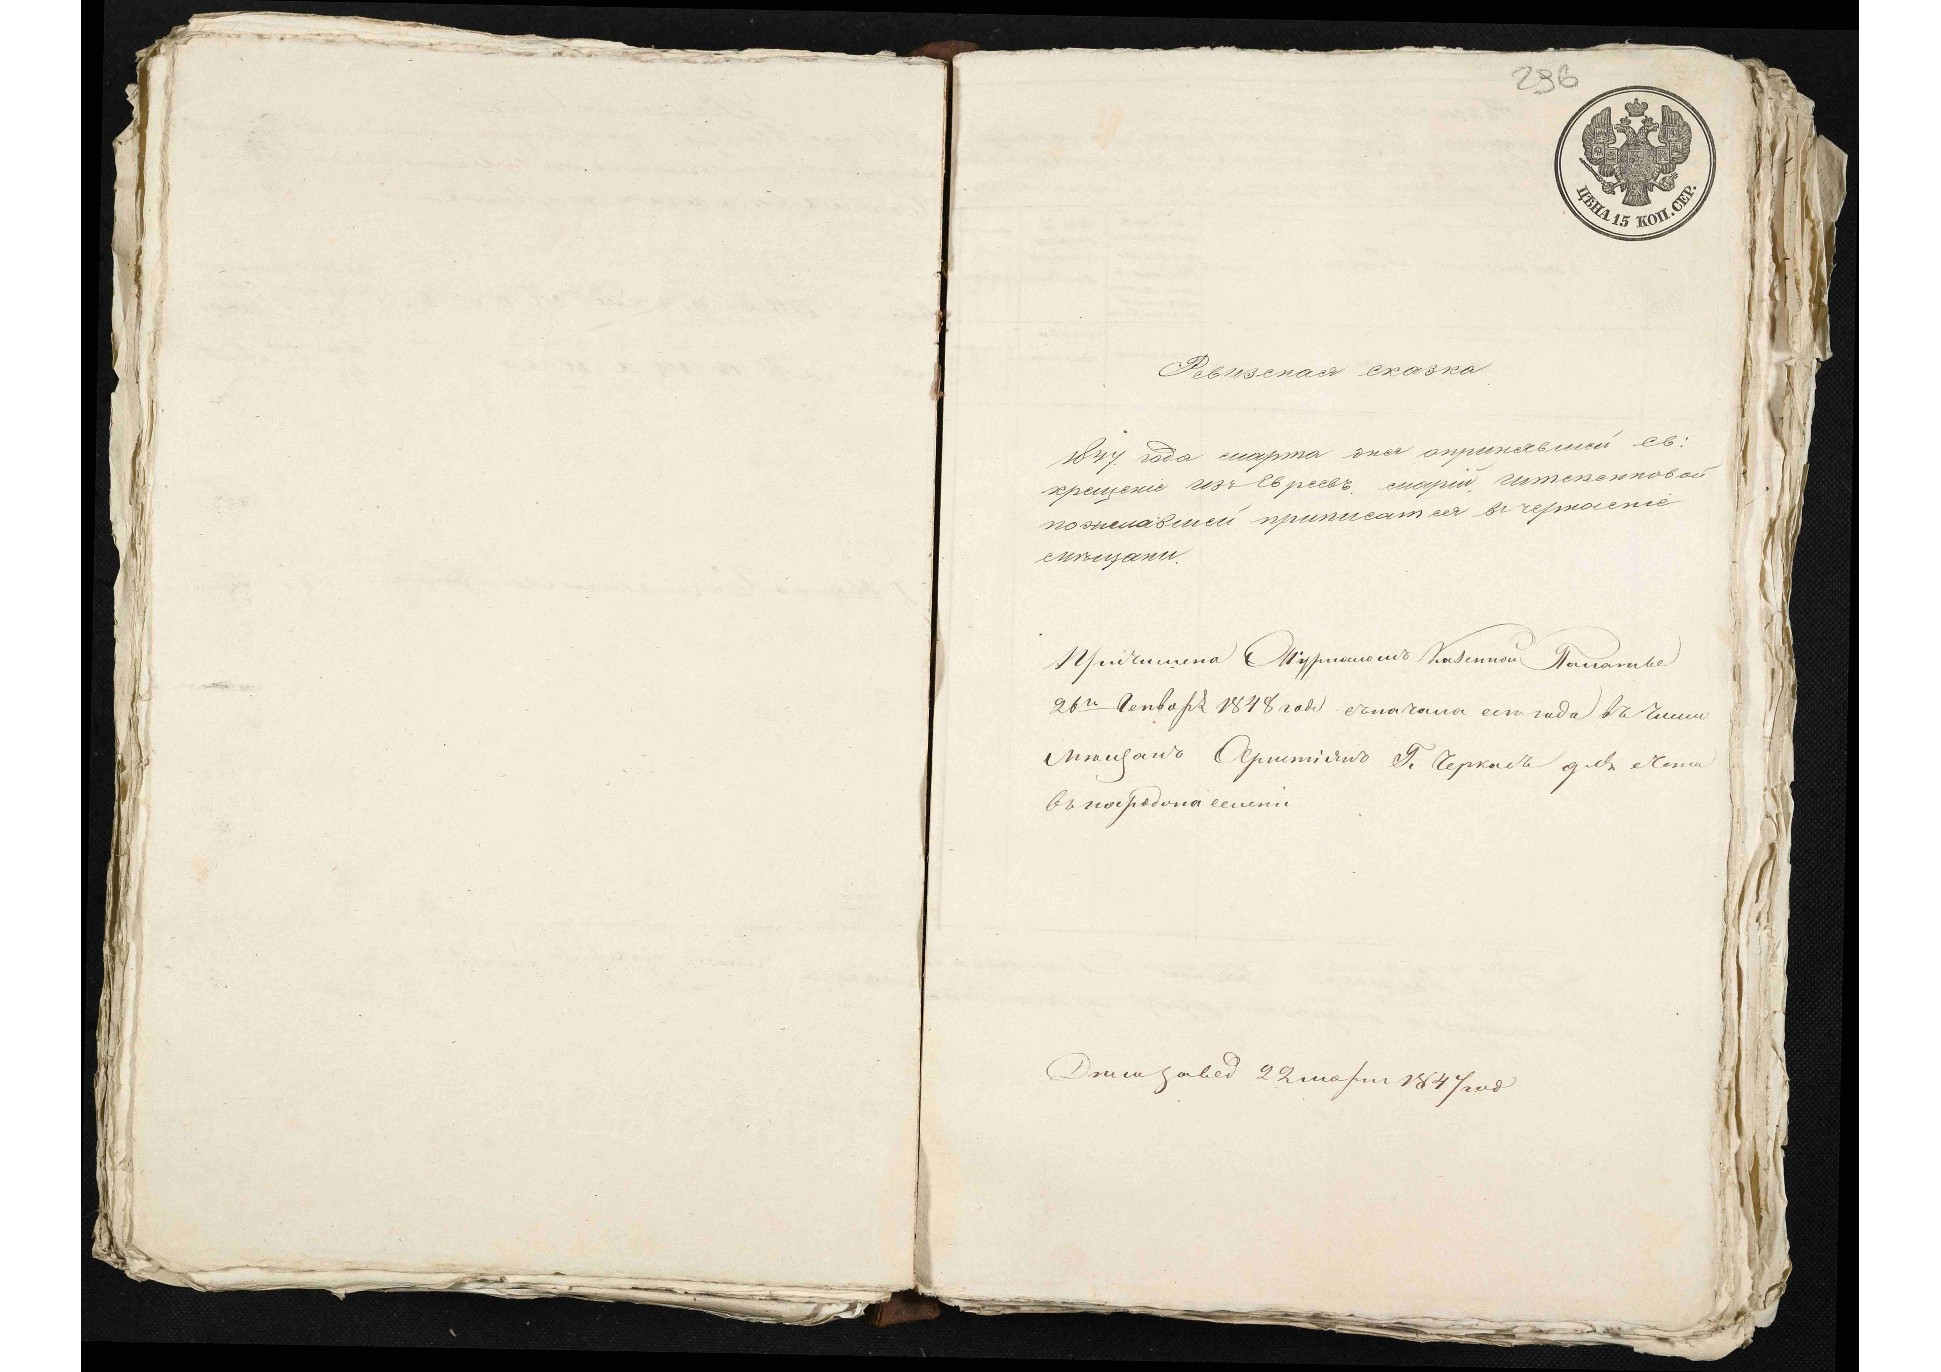 296
ЦѢНА 15 КОП. СЕР.
Ревизская сказка
1847. года марта дня опринявшей св:
крещеніе изъ Евреевъ. маріи,
пожелавшей приписатся вчеркаскіе
мѣщани.
Причислена Казенною Палатые
26го Генворя 1848 года съначала сего года въ число
Мѣщанъ Христіянъ Г. Черкасъ для счета
въ народонаселеніи
22 марта 1847 год